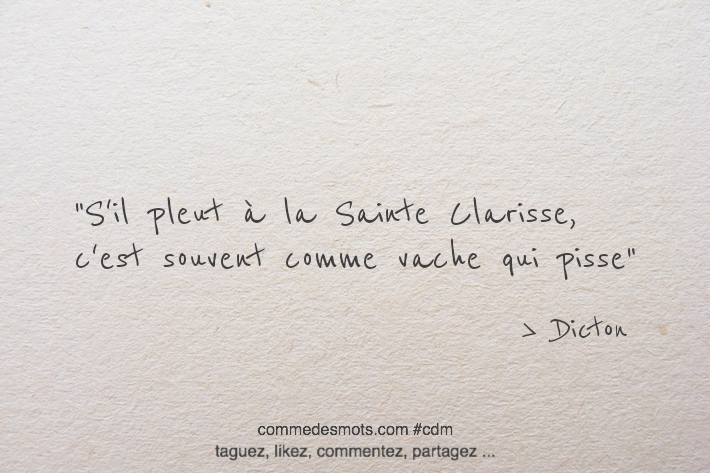 "S'il pleut à la Sainte Clarisse,
c'est souvent comme vache qui pisse"
> Dicton
commedesmots.com #cdm
taguez, likez, commentez, partagez ...